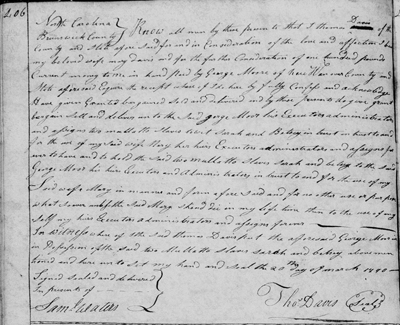 406
North Carolina
Brunswick County Know all men by these presents that I Thomas Davis of the
County and State aforesaid for and in Consideration of the love and affection I have
my beloved wife Mary Davis and for the further Consideration of one hundred pounds
Current money to me in hand Paid by George Moore of New Hanover County and
State aforesaid Esquire the receipt whereof I do hereby fully Confess and acknowledge
Have given Granted bargained Sold and delivered and by these presents do give grant
bargain Sell and deliver unto the Said George Moore his Executors administrators
and assigns two mullatto Slaves Sarah and Betsey in trust
for the use of my Said wife Mary his heirs Executors administrators and assigns for
to have and to hold the Said two mullatto Slaves Sarah and betsey to the Said
George Moore his heirs Executors and administrators in trust and for the use of my
Said wife Mary in manner and form afore Said and for no other use or purpose
what soever unless the Said Mary Should die in my life time then to the use of my
Self my heirs Executors administrators and assigns forever
In witness where of the Said Thomas Davis put the aforesaid George Moore
in Possession of the Said two Mullatto Slaves Sarah and betsey above men
tioned and here unto Set my hand and Seal the day of March
Signed Sealed and delivered
In presents of
Sam Watters
Tho Davis Seal